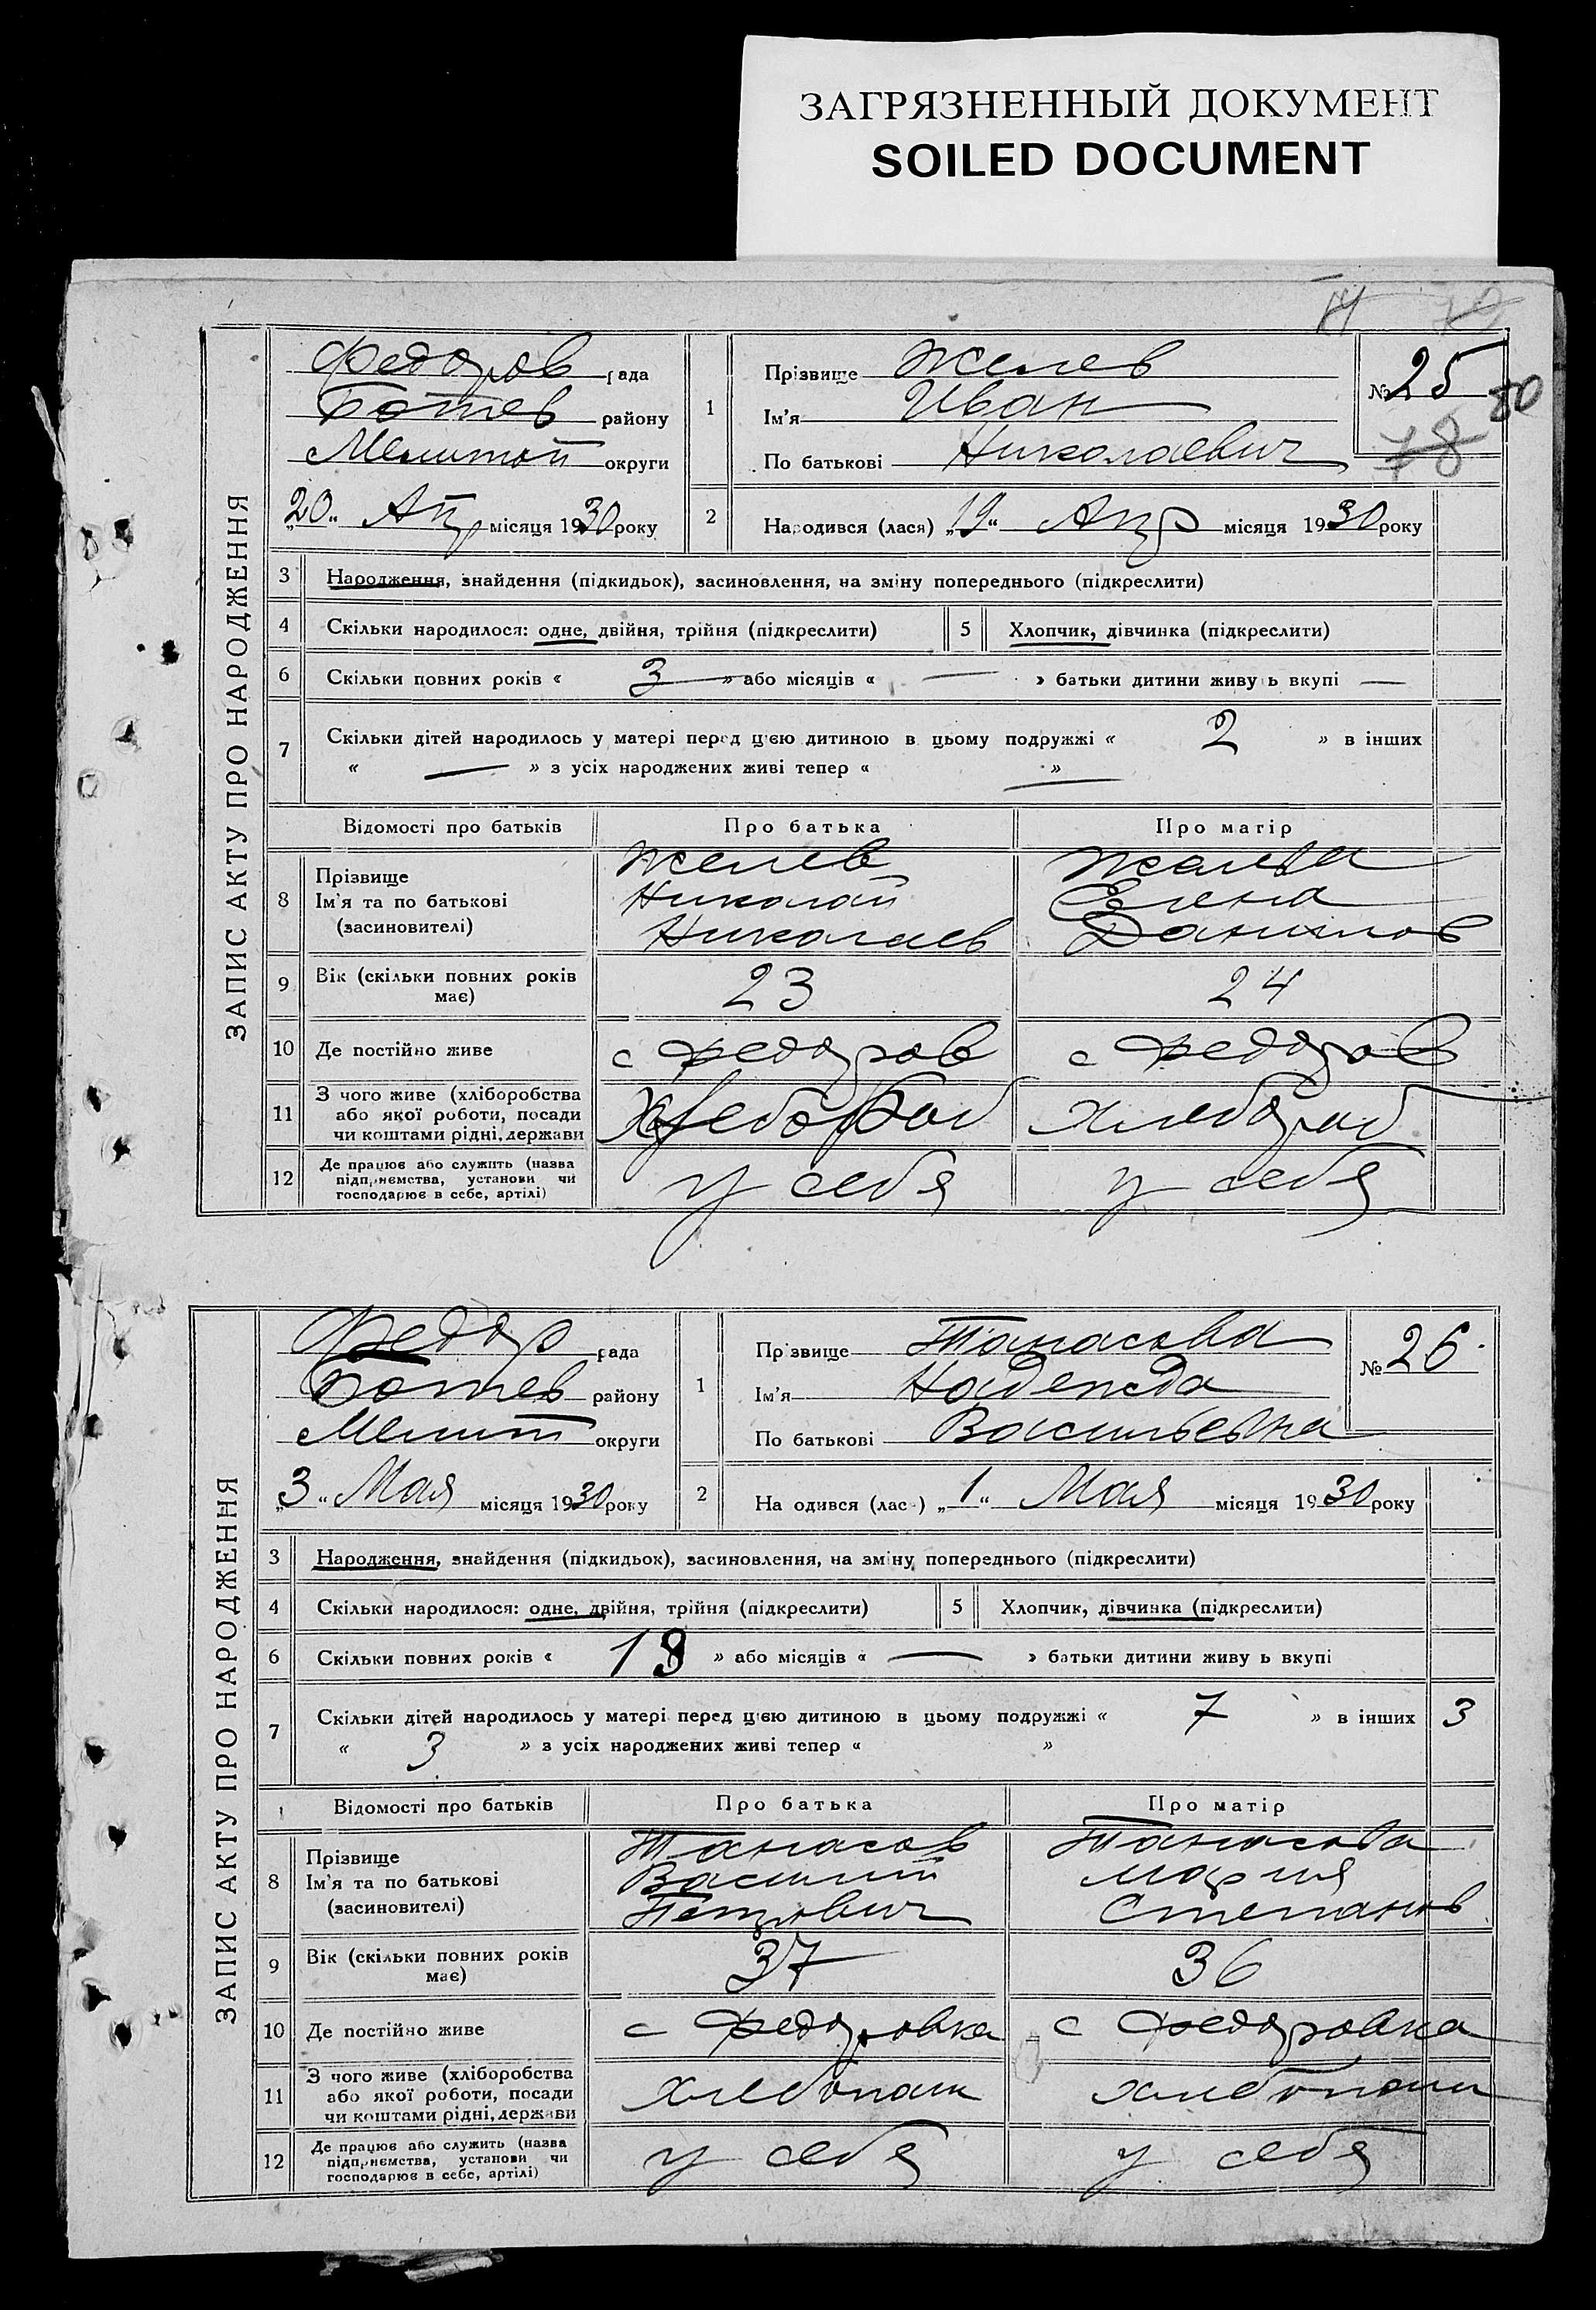 ЗАГРЯЗНЕННЫЙ ДОКУМЕНТ
SOILED DOCUMENT
ЗАПИС АКТУ ПРО НАРОДЖЕННЯ
Федоров рада
Ботев району
Мелитоп округи
„20“ Апр місяця 1930 року
1
Прізвище Желев
Ім'я Иван
По батькові Николаевич
№ 25
80
78
2
Народився (лася) „19“ Апр місяця 1930 року
3 Народження, знайдення (підкидьок), засиновлення, на зміну попереднього (підкреслити)
4 Скільки народилося: одне, двійня, трійня (підкреслити) 5 Хлопчик, дівчинка (підкреслити)
6 Скільки повних років « 3 » або місяців « — » батьки дитини живуь вкупі —
7 Скільки дітей народилось у матері перед цією дитиною в цьому подружжі « 2 » в інших
« — » з усіх народжених живі тепер « — »
Відомості про батьків Про батька Про матір
8 Прізвище Ім'я та по батькові (засиновителі)
Желев Николай Николаев
Желева Елена Данилов
9 Вік (скільки повних років має) 23 24
10 Де постійно живе с Федоров с Федоров
11 З чого живе (хліборобства або якої роботи, посади чи коштами рідні, держави Хлебороб хлебороб
12 Де працює або служить (назва підприємства, установи чи господарює в себе, артілі) у себя у себя
ЗАПИС АКТУ ПРО НАРОДЖЕННЯ
Федор рада
Ботев району
Мелит округи
„3“ Мая місяця 1930 року
1
Прізвище Танасова
Ім'я Надежда
По батькові Васильевна
№ 26
2
На одився (лас ) „1“ Мая місяця 1930 року
3 Народження, знайдення (підкидьок), засиновлення, на зміну попереднього (підкреслити)
4 Скільки народилося: одне, двійня, трійня (підкреслити) 5 Хлопчик, дівчинка (підкреслити)
6 Скільки повних років « 18 » або місяців « — » батьки дитини живу ь вкупі
7 Скільки дітей народилось у матері перед цією дитиною в цьому подружжі « 7 » в інших 3
« 3 » з усіх народжених живі тепер « »
Відомості про батьків Про батька Про матір
8 Прізвище Ім'я та по батькові (засиновителі)
Танасов Василий Петрович
Танасова Мария Степанов
9 Вік (скільки повних років має) 37 36
10 Де постійно живе с Федоровка с Федоровка
11 З чого живе (хліборобства або якої роботи, посади чи коштами рідні, держави хлебопаш хлебопаш
12 Де працює або служить (назва підприємства, установи чи господарює в себе, артілі) у себя у себя